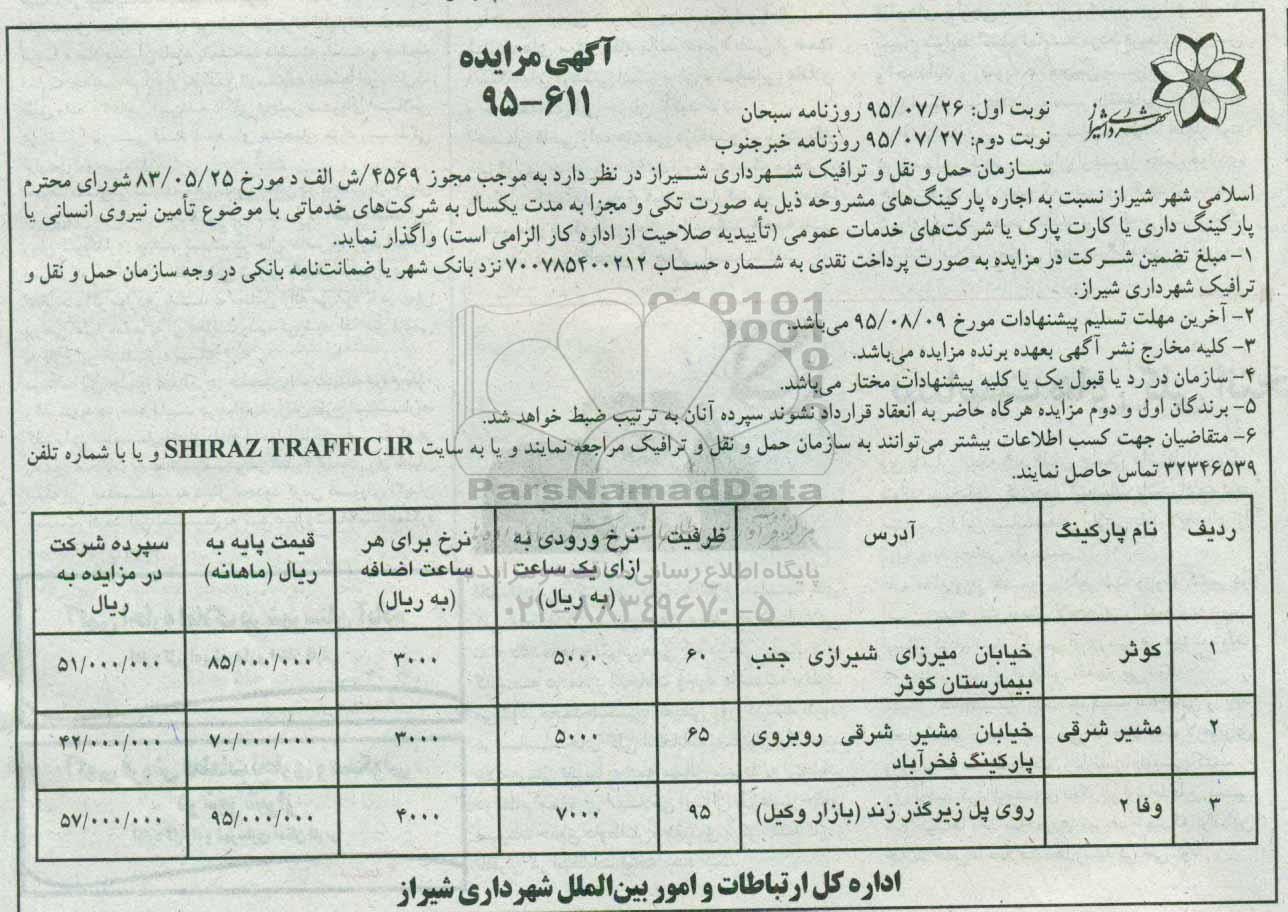 آگهی مزایده
۹۵-۶۱۱
شهرداری شیراز
نوبت اول: ۹۵/۰۷/۲۶ روزنامه سبحان
نوبت دوم: ۹۵/۰۷/۲۷ روزنامه خبرجنوب
ســـازمان حمل و نقل و ترافیک شـــهرداری شـــیراز در نظر دارد به موجب مجوز ۴۵۶۹/ش الف د مورخ ۸۳/۰۵/۲۵ شورای محترم
اسلامی شهر شیراز نسبت به اجاره پارکینگ‌های مشروحه ذیل به صورت تکی و مجزا به مدت یکسال به شرکت‌های خدماتی با موضوع تأمین نیروی انسانی یا
پارکینگ داری یا کارت پارک یا شرکت‌های خدمات عمومی (تأییدیه صلاحیت از اداره کار الزامی است) واگذار نماید.
۱- مبلغ تضمین شـــرکت در مزایده به صورت پرداخت نقدی به شـــماره حســـاب ۷۰۰۷۸۵۴۰۰۲۱۲ نزد بانک شهر یا ضمانت‌نامه بانکی در وجه سازمان حمل و نقل و
ترافیک شهرداری شیراز.
۲- آخرین مهلت تسلیم پیشنهادات مورخ ۹۵/۰۸/۰۹ می‌باشد.
۳- کلیه مخارج نشر آگهی بعهده برنده مزایده می‌باشد.
۴- سازمان در رد یا قبول یک یا کلیه پیشنهادات مختار می‌باشد.
۵- برندگان اول و دوم مزایده هرگاه حاضر به انعقاد قرارداد نشوند سپرده آنان به ترتیب ضبط خواهد شد.
۶- متقاضیان جهت کسب اطلاعات بیشتر می‌توانند به سازمان حمل و نقل و ترافیک مراجعه نمایند و یا به سایت SHIRAZ TRAFFIC.IR و یا با شماره تلفن
۳۲۳۴۶۵۳۹ تماس حاصل نمایند.
ParsNamadData
پایگاه اطلاع رسانی مناقصه و مزایده
۰۲۱-۸۸۳۴۹۶۷۰-۵
ردیف نام پارکینگ آدرس ظرفیت نرخ ورودی به ازای یک ساعت (به ریال) نرخ برای هر ساعت اضافه (به ریال) قیمت پایه به ریال (ماهانه) سپرده شرکت در مزایده به ریال
۱ کوثر خیابان میرزای شیرازی جنب بیمارستان کوثر ۶۰ ۵۰۰۰ ۳۰۰۰ ۸۵/۰۰۰/۰۰۰ ۵۱/۰۰۰/۰۰۰
۲ مشیر شرقی خیابان مشیر شرقی روبروی پارکینگ فخرآباد ۶۵ ۵۰۰۰ ۳۰۰۰ ۷۰/۰۰۰/۰۰۰ ۴۲/۰۰۰/۰۰۰
۳ وفا ۲ روی پل زیرگذر زند (بازار وکیل) ۹۵ ۷۰۰۰ ۴۰۰۰ ۹۵/۰۰۰/۰۰۰ ۵۷/۰۰۰/۰۰۰
اداره کل ارتباطات و امور بین‌الملل شهرداری شیراز